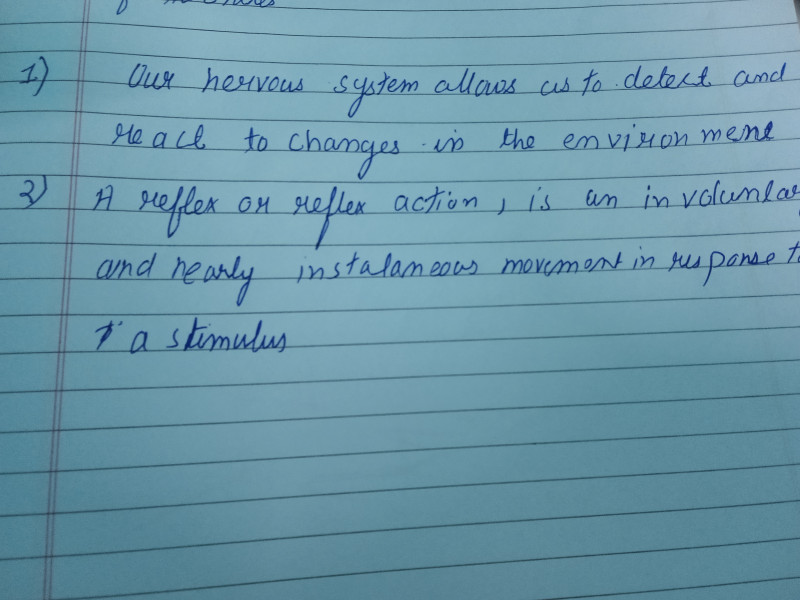 1) Our nervous system allows us to detect and
react to changes in the environment
2) A reflex or reflex action, is an involuntar
and nearly instalaneous movement in response to
a stimulus